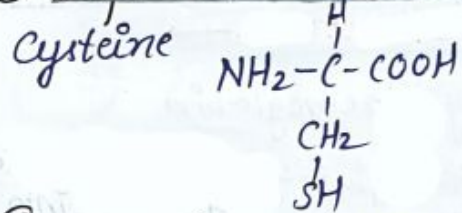 H
Cysteine NH2-C-COOH
CH2
SH